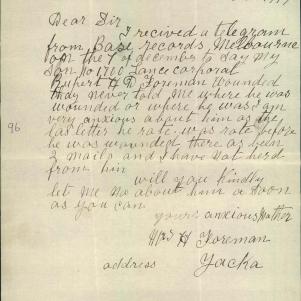 Dear Sir
I recived a telegram
from Base records, Melbourne
on the 7 of december to say My
Son No 1760 Lance corporal
Rupert H D Foreman Wounded
thay never told Me where he was
wounded or where he was I am
very anxious about him as the
last letter he rate was rate before
he was wounded there as been
2 mails and I have not herd
from him
will you kindly
let Me No about him a Soon
as you can
yours anxious Mother
Mrs H Foreman
address Yacka
96